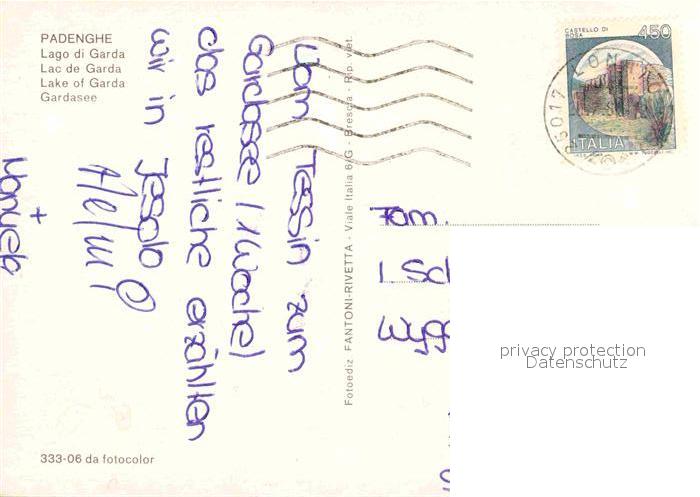 PADENGHE
Lago di Garda
Lac de Garda
Lake of Garda
Gardasee
CASTELLO DI
BOSA
450
ITALIA
Vom Tessin zum
Gardasee (1 Woche)
das restliche erzählen
wir in Jesolo
Helmi
+
Manuela
Fotoediz FANTONI-RIVETTA - Viale Italia 6/G - Brescia - Rip. viet.
Fam.
privacy protection
Datenschutz
333-06 da fotocolor